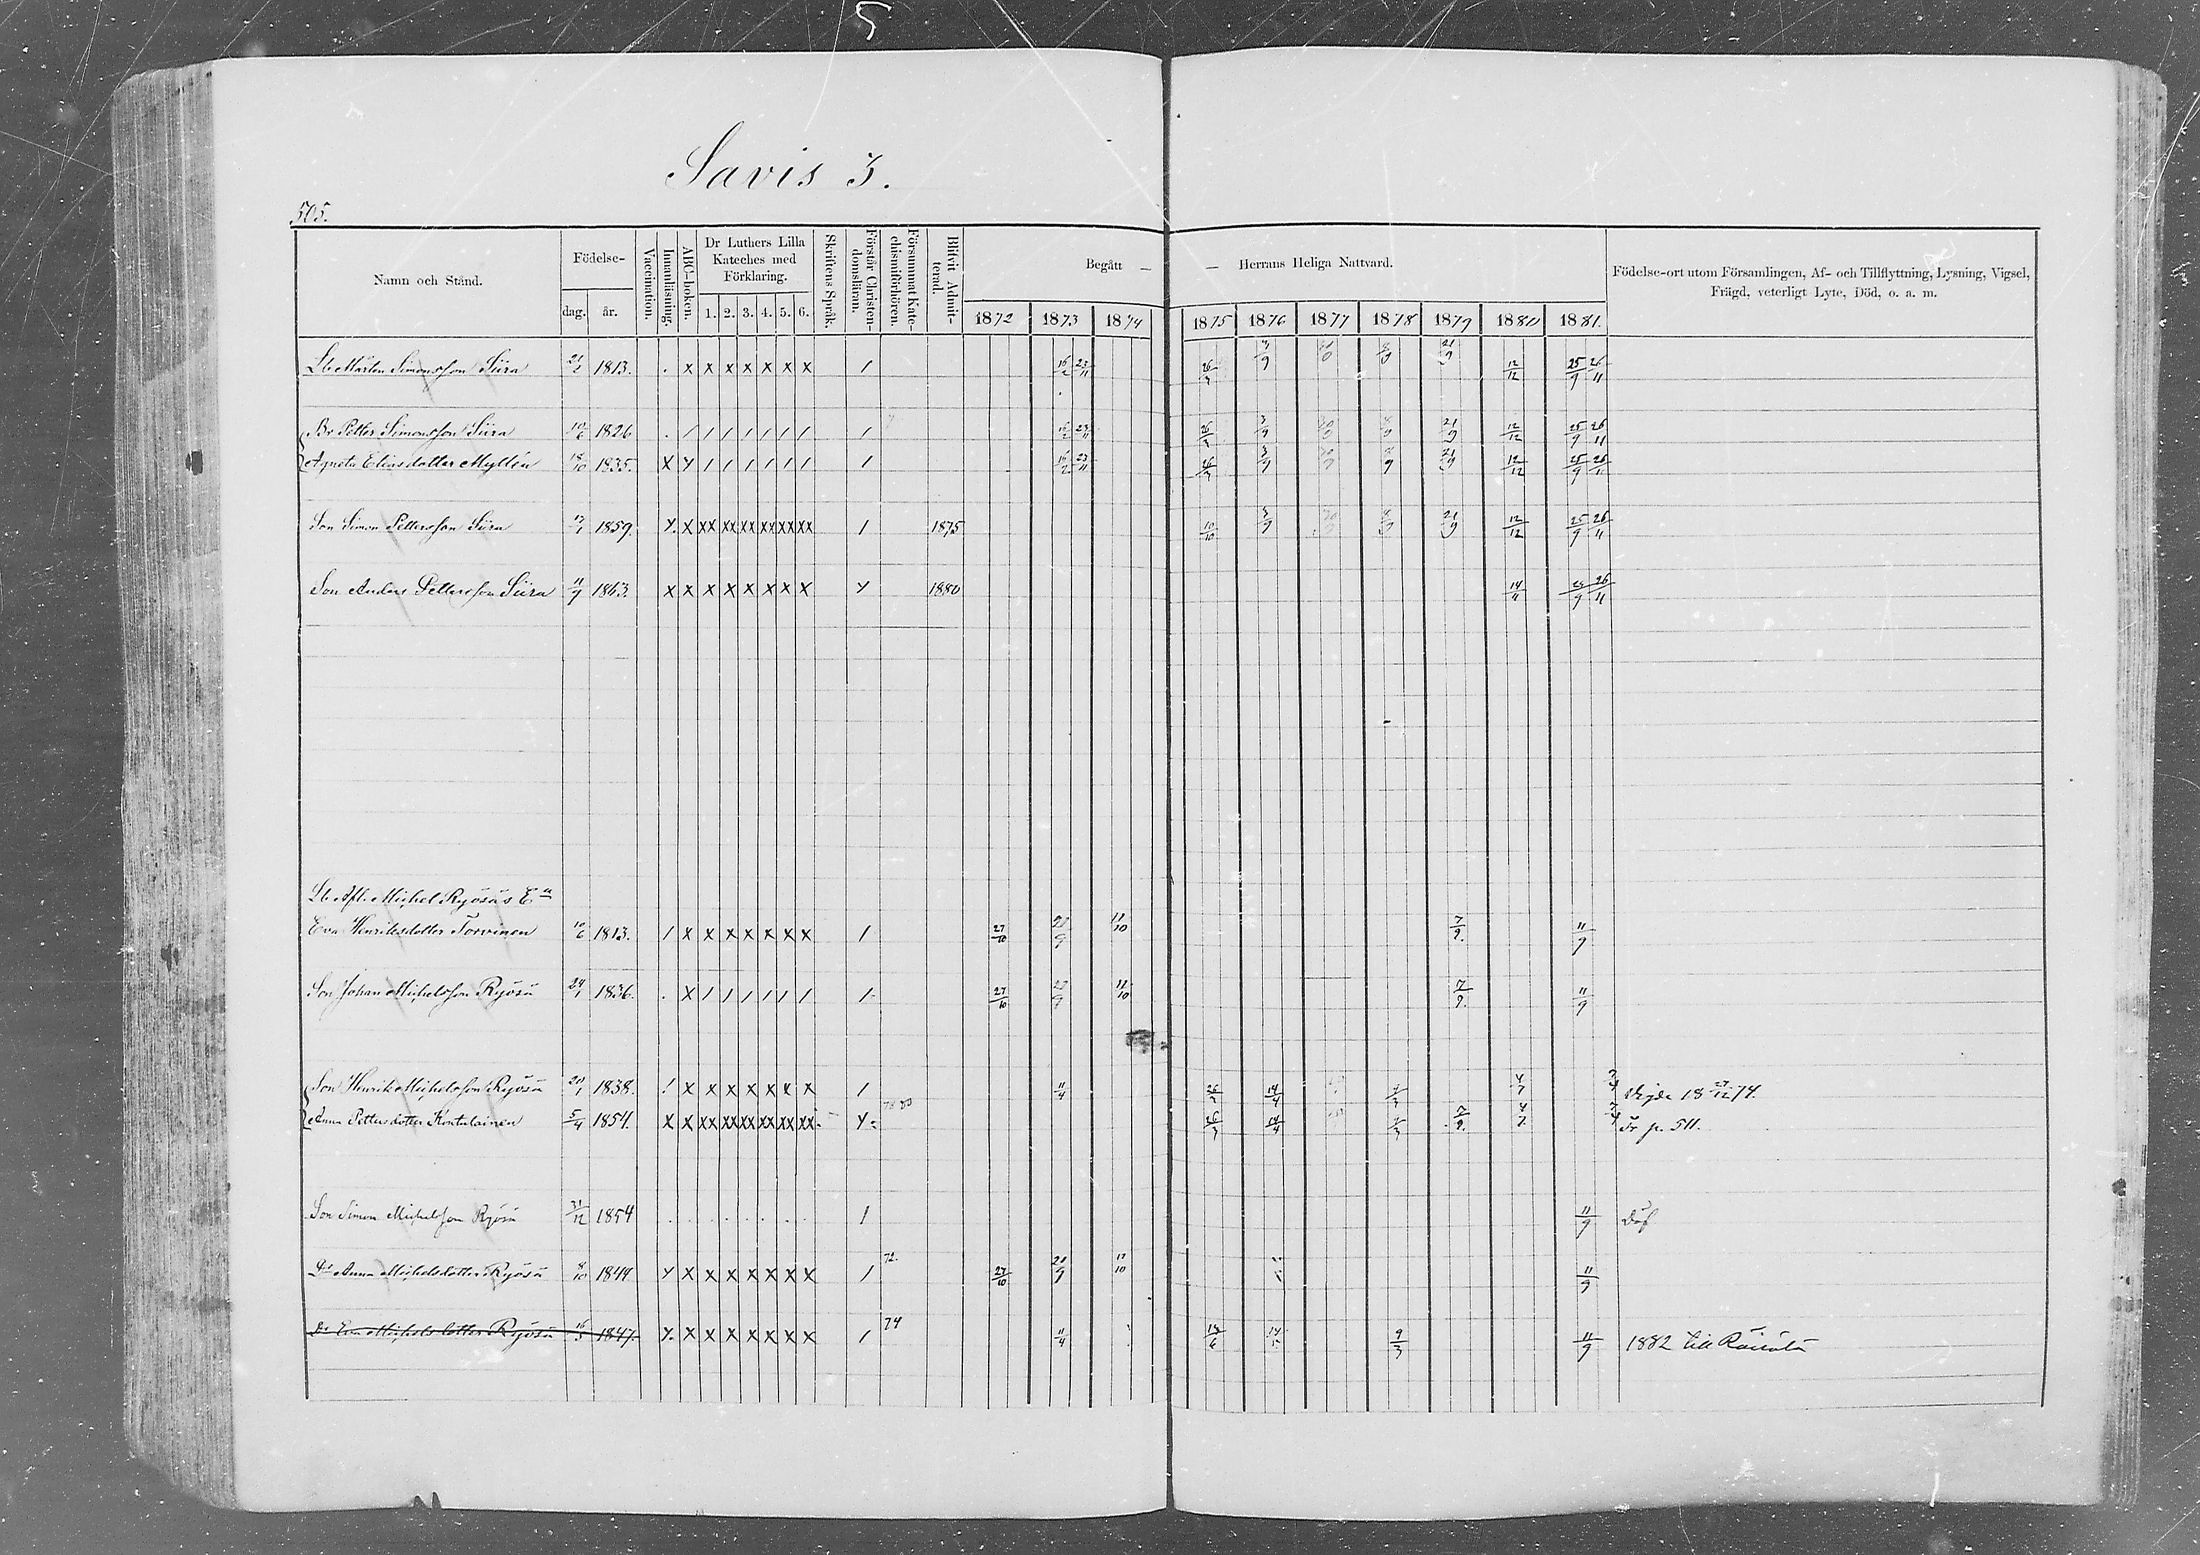 5
Savis 3.
505.
Namn och Stånd.
Födelse-
dag.
år.
Vaccination.
Innanläsning.
ABC-boken.
Dr Luthers Lilla
Kateches med
Förklaring.
1. 2. 3. 4. 5. 6.
Skriftens Språk.
Förstår Christen-
domsläran.
Försummat Kate-
chismiförhören.
Blifvit Admit-
terad.
Begått — — Herrans Heliga Nattvard.
1872 1873 1874 1875 1876 1877 1878 1879 1880 1881.
Födelse-ort utom Församlingen, Af- och Tillflyttning, Lysning, Vigsel,
Frägd, veterligt Lyte, Död, o. a. m.
Lb. Mårten Simonsson Siira 1813. . x x x x x x x / 16/2 23/11 26/3 3/9 21/9 12/12 25/9 26/11
Br Petter Simonsson Siira 10/6 1826 . / / / / / / / / 16/2 23/11 26/3 3/9 21/9 12/12 25/9 26/11
Agneta Eliasdotter Myllén 18/10 1835. x y / / / / / / / 16/2 23/11 26/3 3/9 21/9 12/12 25/9 26/11
Son Simon Pettersson Siira 1859. y. x xx xx xx xx xx xx / 1875 10/10 3/9 21/9 12/12 25/9 26/11
Son Anders Pettersson Siira 11/9 1863. x x x x x x x x y 1880 14/11 25/9 26/11
Lb. Afl. Michel Ryösäs Ea
Eva Henriksdotter Torvinen 10/6 1813. / x x x x x x x / 27/10 28/9 11/10 7/9. 11/9
Son Johan Michelsson Ryösä 24/1 1836. . x / / / / / / / 27/10 11/10 7/9. 11/9
Son Henrik Michelsson Ryösä 20/1 1838. / x x x x x x x / 11/4 26/3 14/4 4/7 Vigde 18 27/12 74.
Anna Pettersdotter Kontulainen 5/4 1854. x x xx xx xx xx xx xx y 78 80 26/3 14/4 7/9. 4/7 Fr p. 511.
Son Simon Michelsson Ryösä 21/12 1854 / 11/9 Döf
Dr Anna Michelsdotter Ryösä 8/10 1849 y x x x x x x x / 72. 27/10 28/9 11/10 11/9
Dr Eva Michelsdotter Ryösä 16/3 1847. y. x x x x x x x / 74 11/4 9/3 11/9 1882 till Räisälä